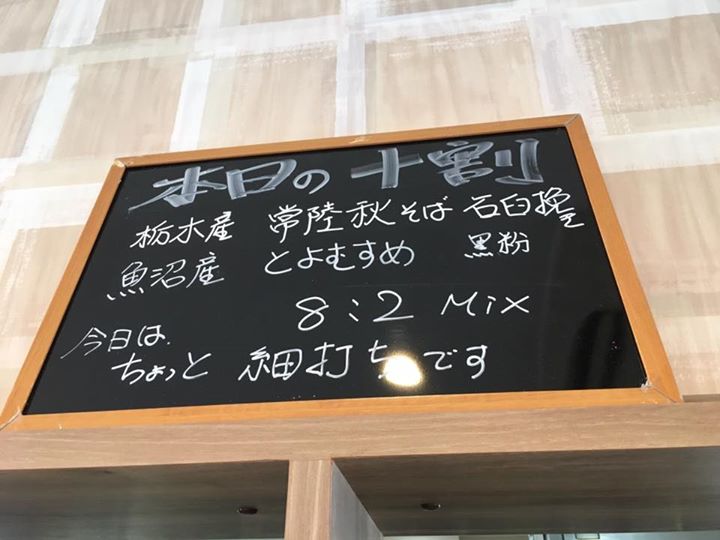 本日の十割
栃木産 常陸秋そば 石臼挽
魚沼産 とよむすめ 黒粉
8:2 Mix
今日は
ちょっと 細打ちです